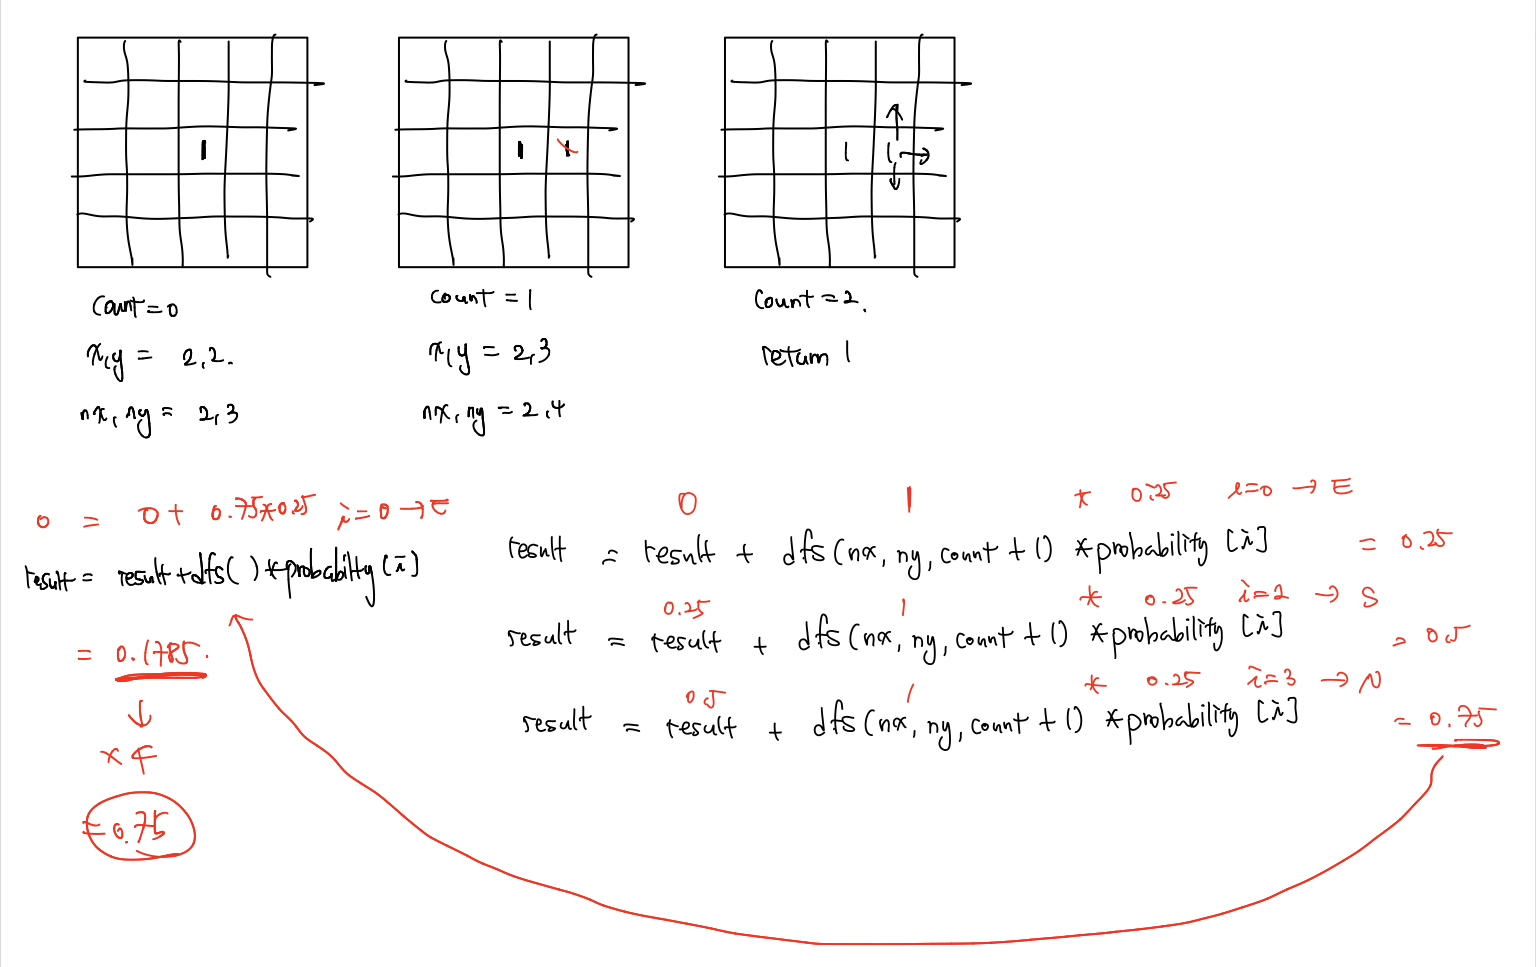 1
1 1
1 1
count=0
x,y = 2,2.
nx, ny = 2,3
count = 1
x,y = 2,3
nx, ny = 2,4
count = 2.
return 1
0 = 0 + 0.75*0.25 i=0 → E
result = result + dfs( ) * probability [i]
= 0.1785.
↓
× 4
= 0.75
0 1 * 0.25 i=0 → E
result = result + dfs (nx, ny, count + 1) * probability [i] = 0.25
0.25 1 * 0.25 i=2 → S
result = result + dfs (nx, ny, count + 1) * probability [i] = 0.5
0.5 1 * 0.25 i=3 → N
result = result + dfs (nx, ny, count + 1) * probability [i] = 0.75